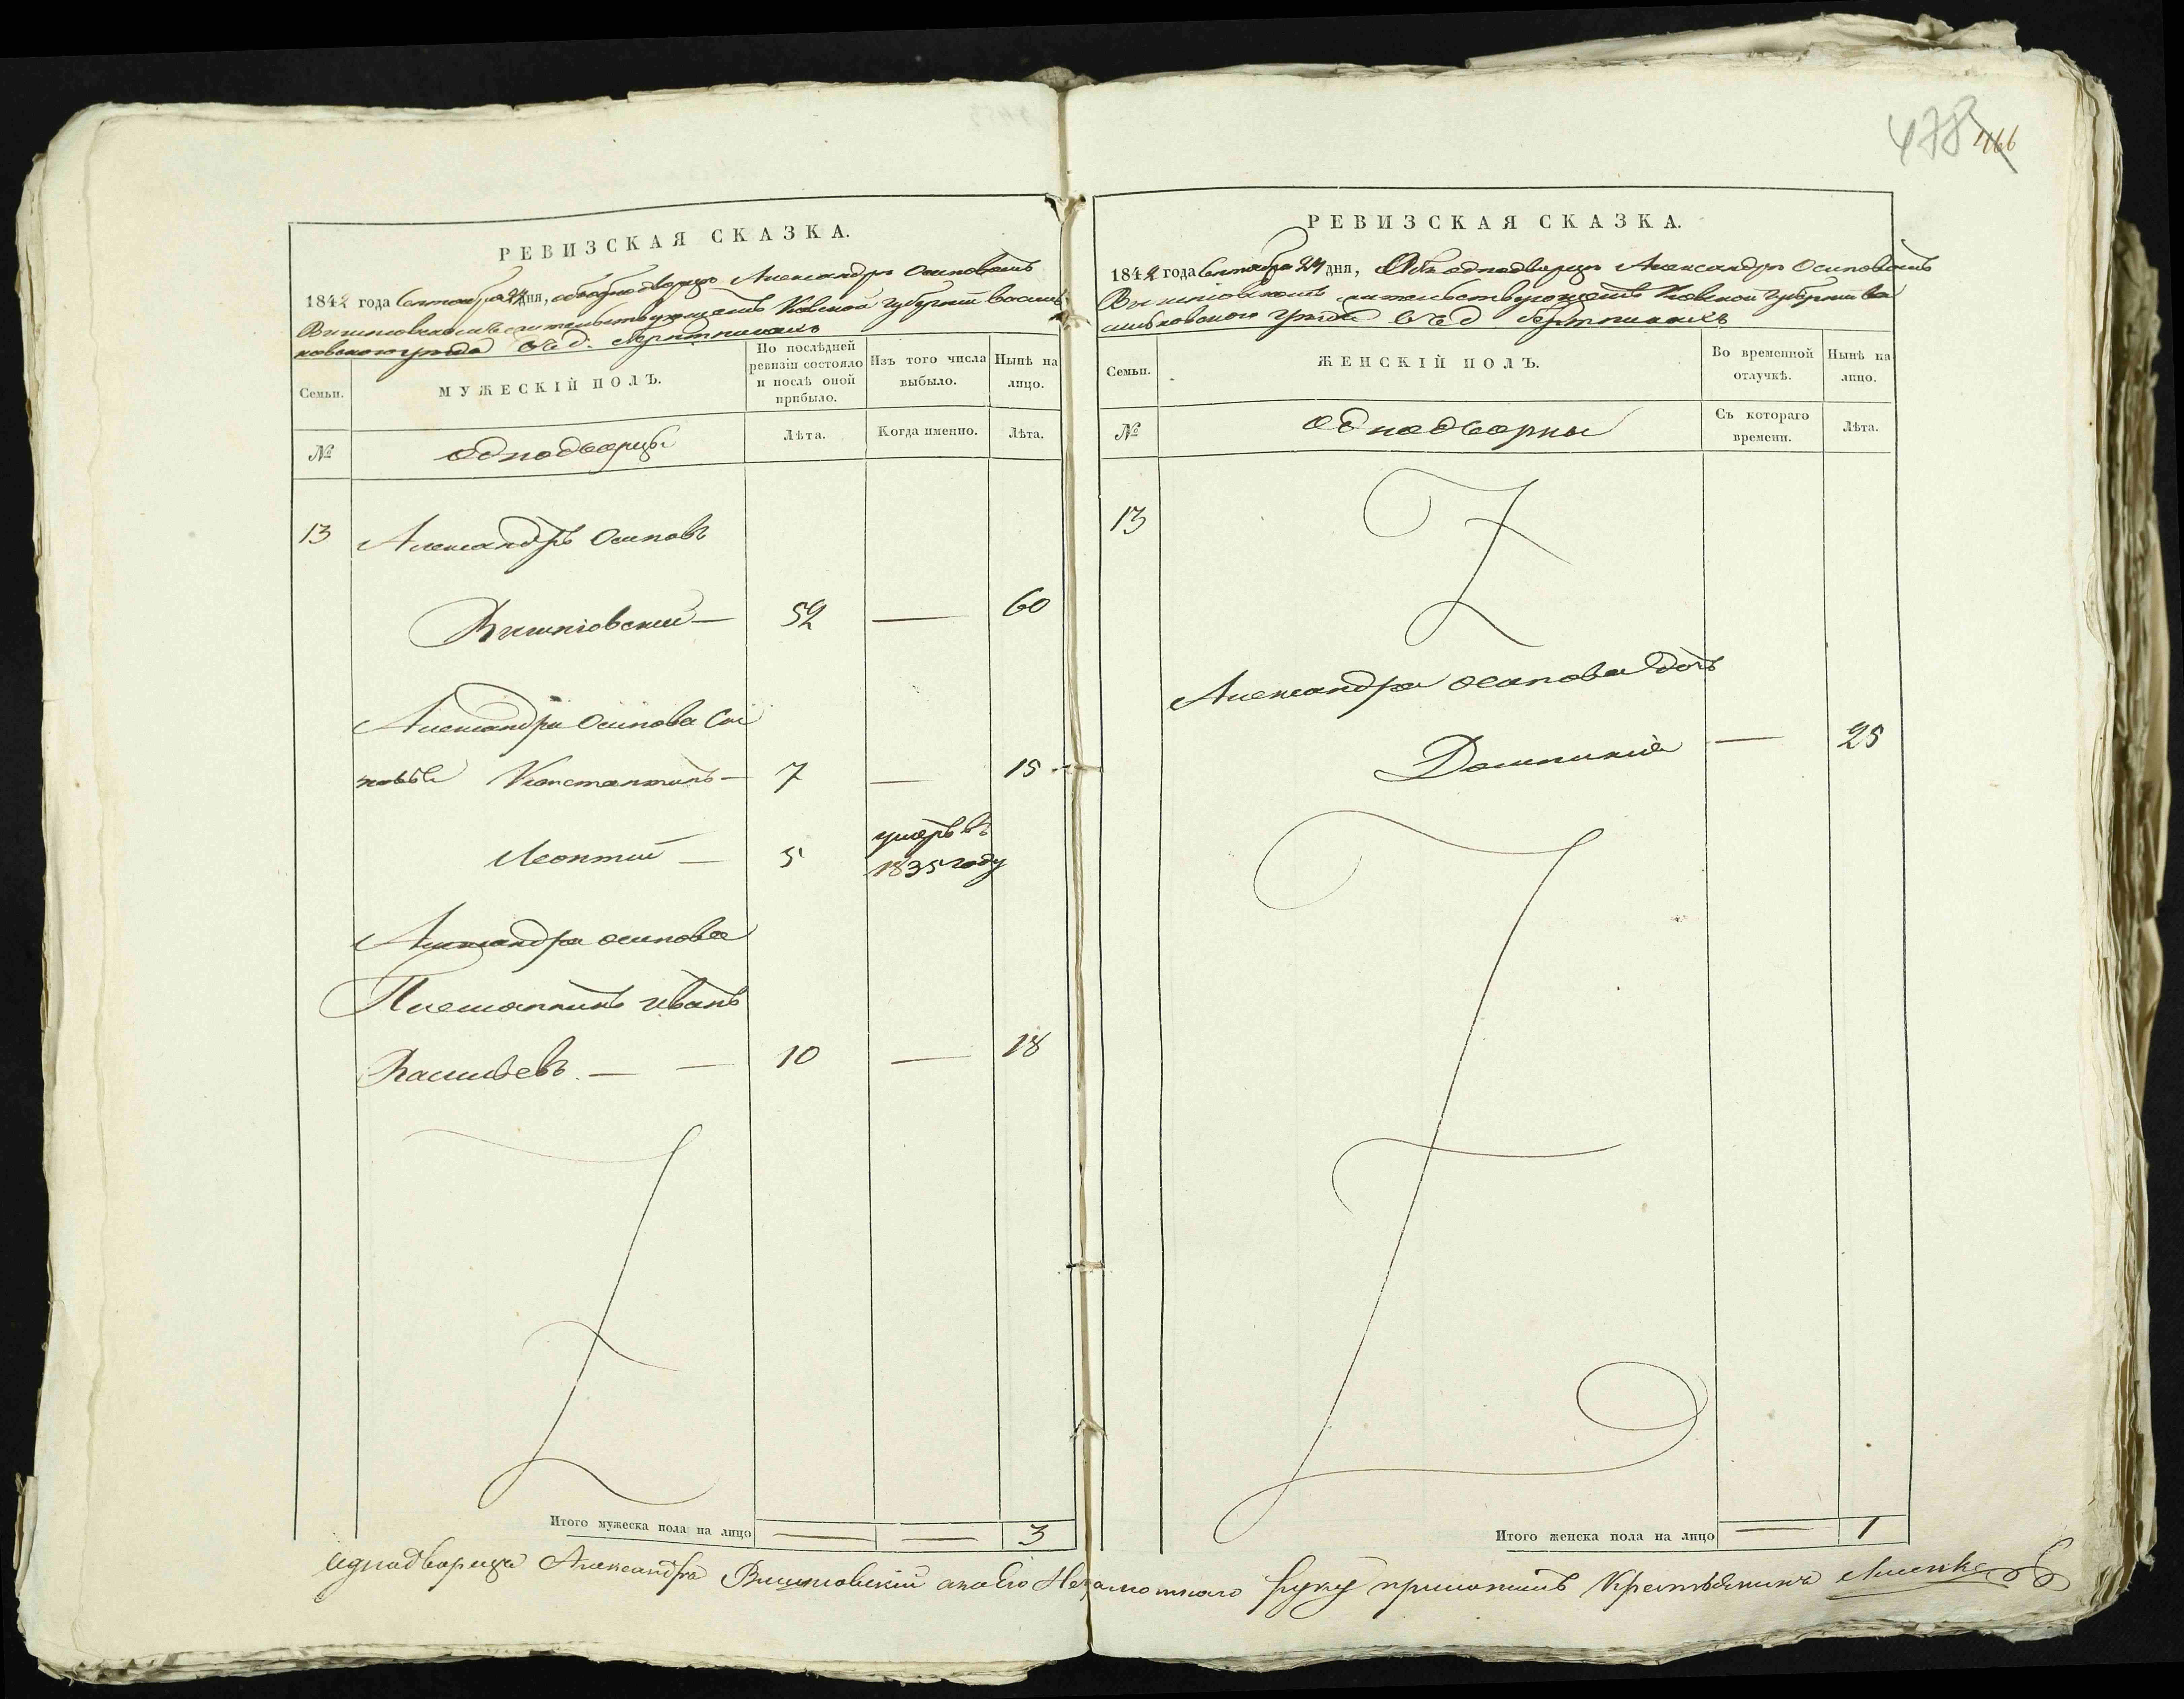 478 466
РЕВИЗСКАЯ СКАЗКА.
1842 года Сентября 24 дня, объ однодворцѣ Александрѣ Осиповомъ
жительствующемъ Кіевской Губерніи Василь
ковскаго уѣзда в сѣд.
Семьи.
МУЖЕСКІЙ ПОЛЪ.
По послѣдней ревизіи состояло и послѣ оной прибыло.
Изъ того числа выбыло.
Нынѣ на лицо.
№
однодворцы
Лѣта.
Когда именно.
Лѣта.
13 Александръ Осиповъ
Вишніовскій — 52 — 60
Александра Осипова Сы
новья Константинъ — 7 — 15
Леонтій — 5 умеръ въ 1835 году
Александра осипова
Племянникъ иванъ
Васильевъ — — 10 — 18
Итого мужеска пола на лицо — — 3
РЕВИЗСКАЯ СКАЗКА.
1842 года Сентября 24 дня, Объ однодворцѣ Александрѣ Осиповомъ
Вишніовскомъ жительствующемъ Кіевской Губерніи Ва
сильковскаго уѣзда в сѣд
Семьи.
ЖЕНСКІЙ ПОЛЪ.
Во временной отлучкѣ.
Нынѣ на лицо.
№
однодворки
Съ котораго времени.
Лѣта.
13
Александра осипова дочь
Домникія — 25
Итого женска пола на лицо — 1
Аднадворица Александра Вишневскій а за Его Неграмотнаго руку приложилъ Крестьянинъ